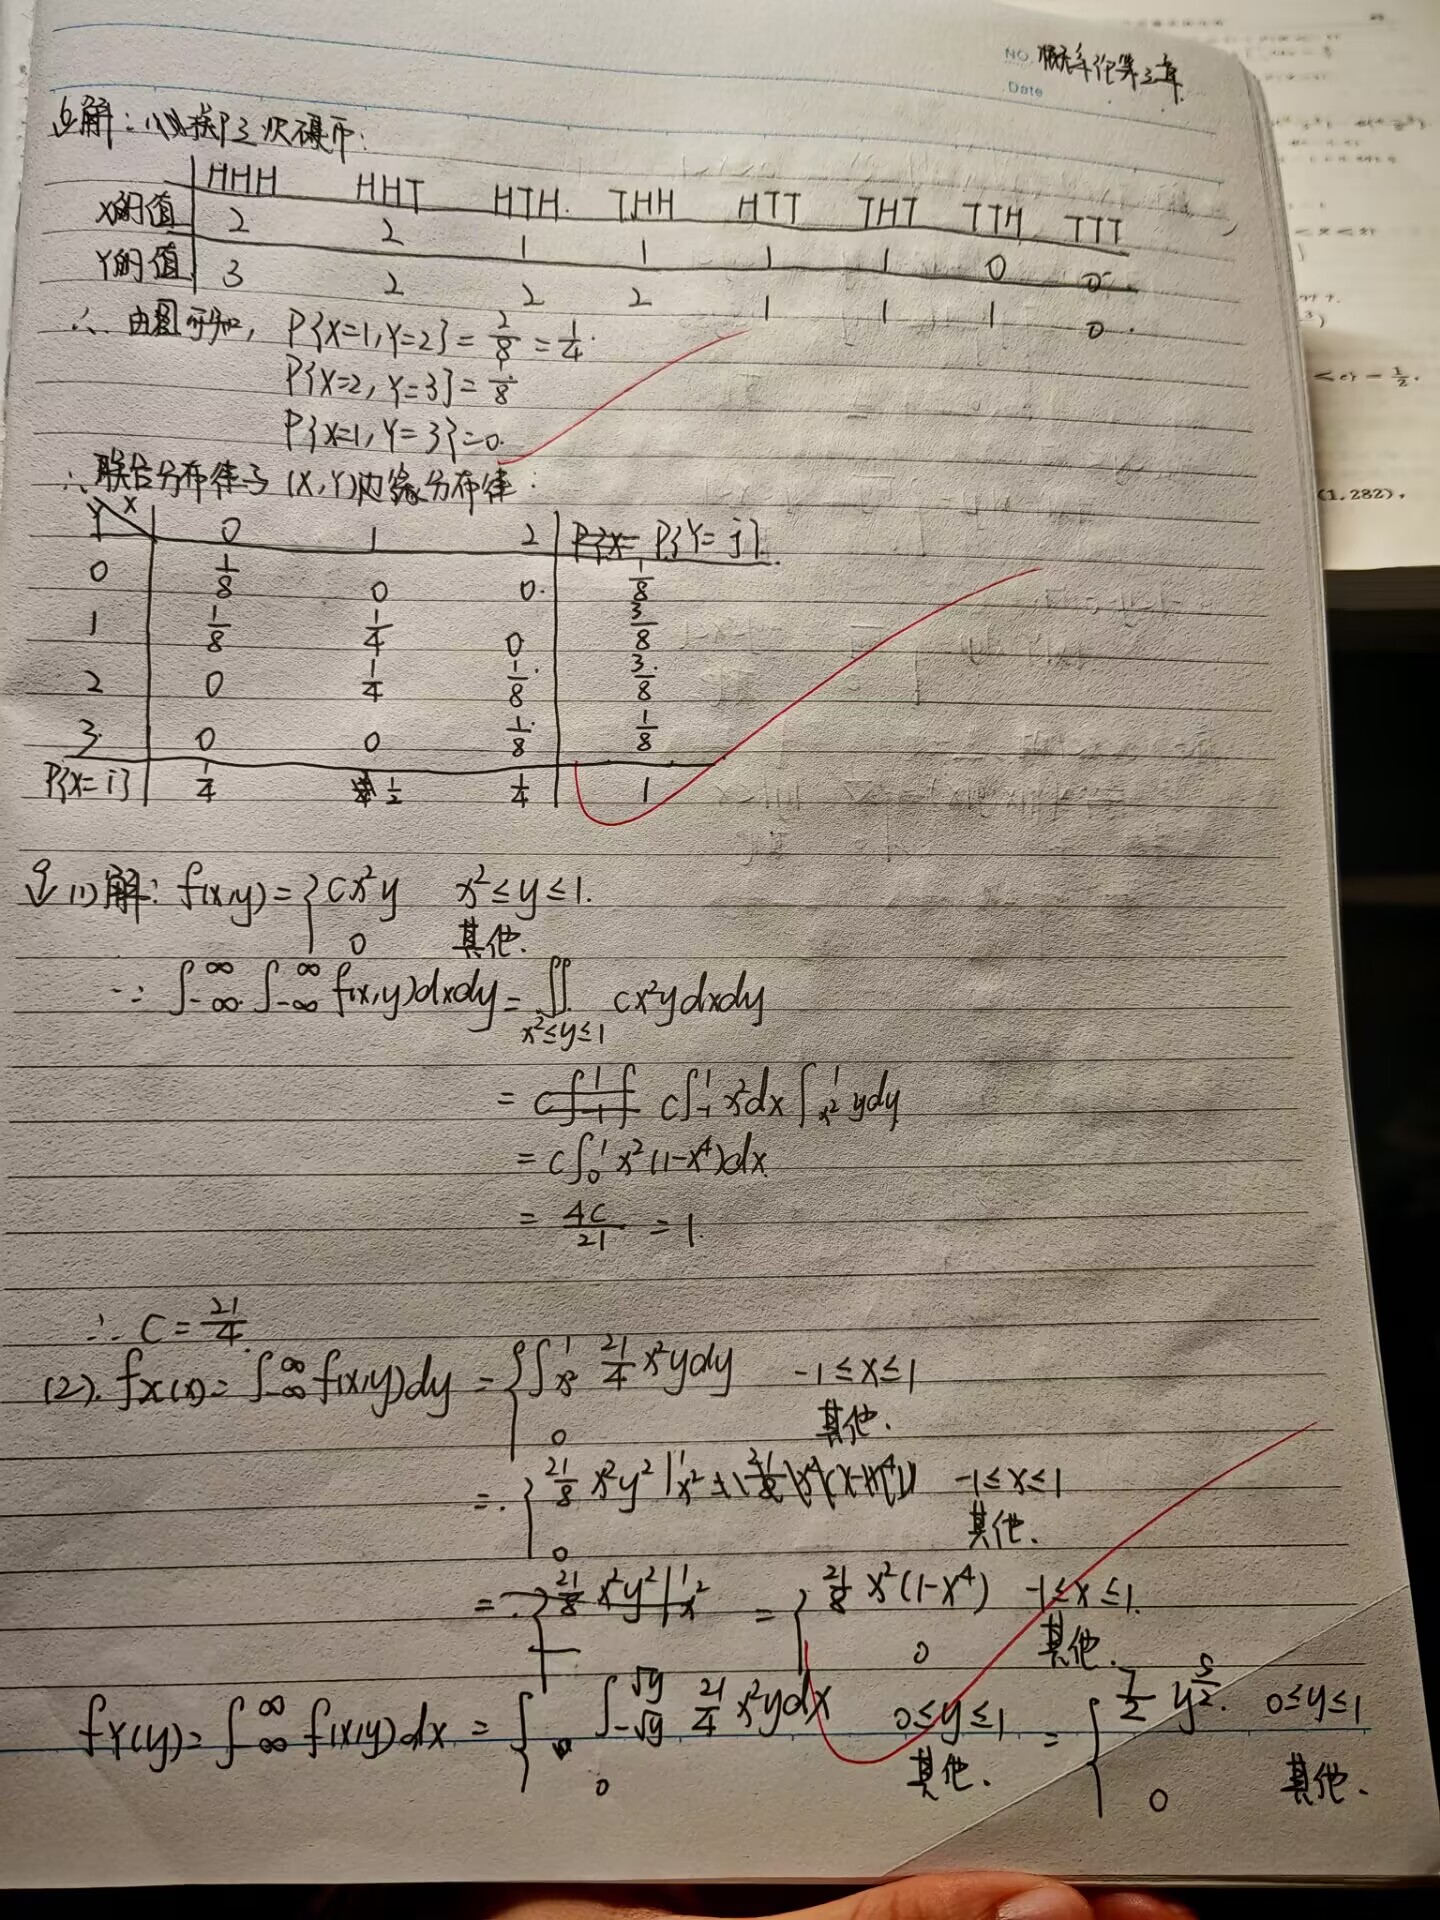 NO. 概率论第三章
Date
6解:(1)抛P三次硬币:
HHH HHT HTH. THH HTT THT TTH TTT
X的值 2 2 1 1 1 1 0 0
Y的值 3 2 2 2 1 1 1 0
∴ 由图可知, P{X=1,Y=2}=2/8=1/4.
P{X=2,Y=3}=1/8
P{X=1,Y=3}=0.
∴联合分布律与(X,Y)边缘分布律:
Y X 0 1 2 P{X= P{Y=j}
0 1/8 0 0. 1/8
1 1/8 1/4 0 3/8
2 0 1/4 1/8 3/8
3 0 0 1/8 1/8
P{X=i} 1/4 1/2 1/4 1
9(1)解: f(x,y)={cx²y x²≤y≤1.
0 其他.
∵ ∫-∞^∞ ∫-∞^∞ f(x,y)dxdy=∬x²≤y≤1 cx²ydxdy
= c∫-1^1∫ c∫-1^1 x²dx∫x²^1 ydy
= c∫0^1 x²(1-x⁴)dx
= 4c/21 = 1.
∴ c=21/4
(2). fX(x)=∫-∞^∞ f(x,y)dy={∫x²^1 21/4 x²ydy -1≤x≤1
0 其他.
={21/8 x²y²|x²^1 -1≤x≤1
0 其他.
={21/8 x²y²|x²^1 ={21/8 x²(1-x⁴) -1≤x≤1.
0 其他.
fY(y)=∫-∞^∞ f(x,y)dx={∫-√y^√y 21/4 x²ydx 0≤y≤1 ={7/2 y^5/2. 0≤y≤1
0 其他. 0 其他.
<er=1/2.
(1.282),